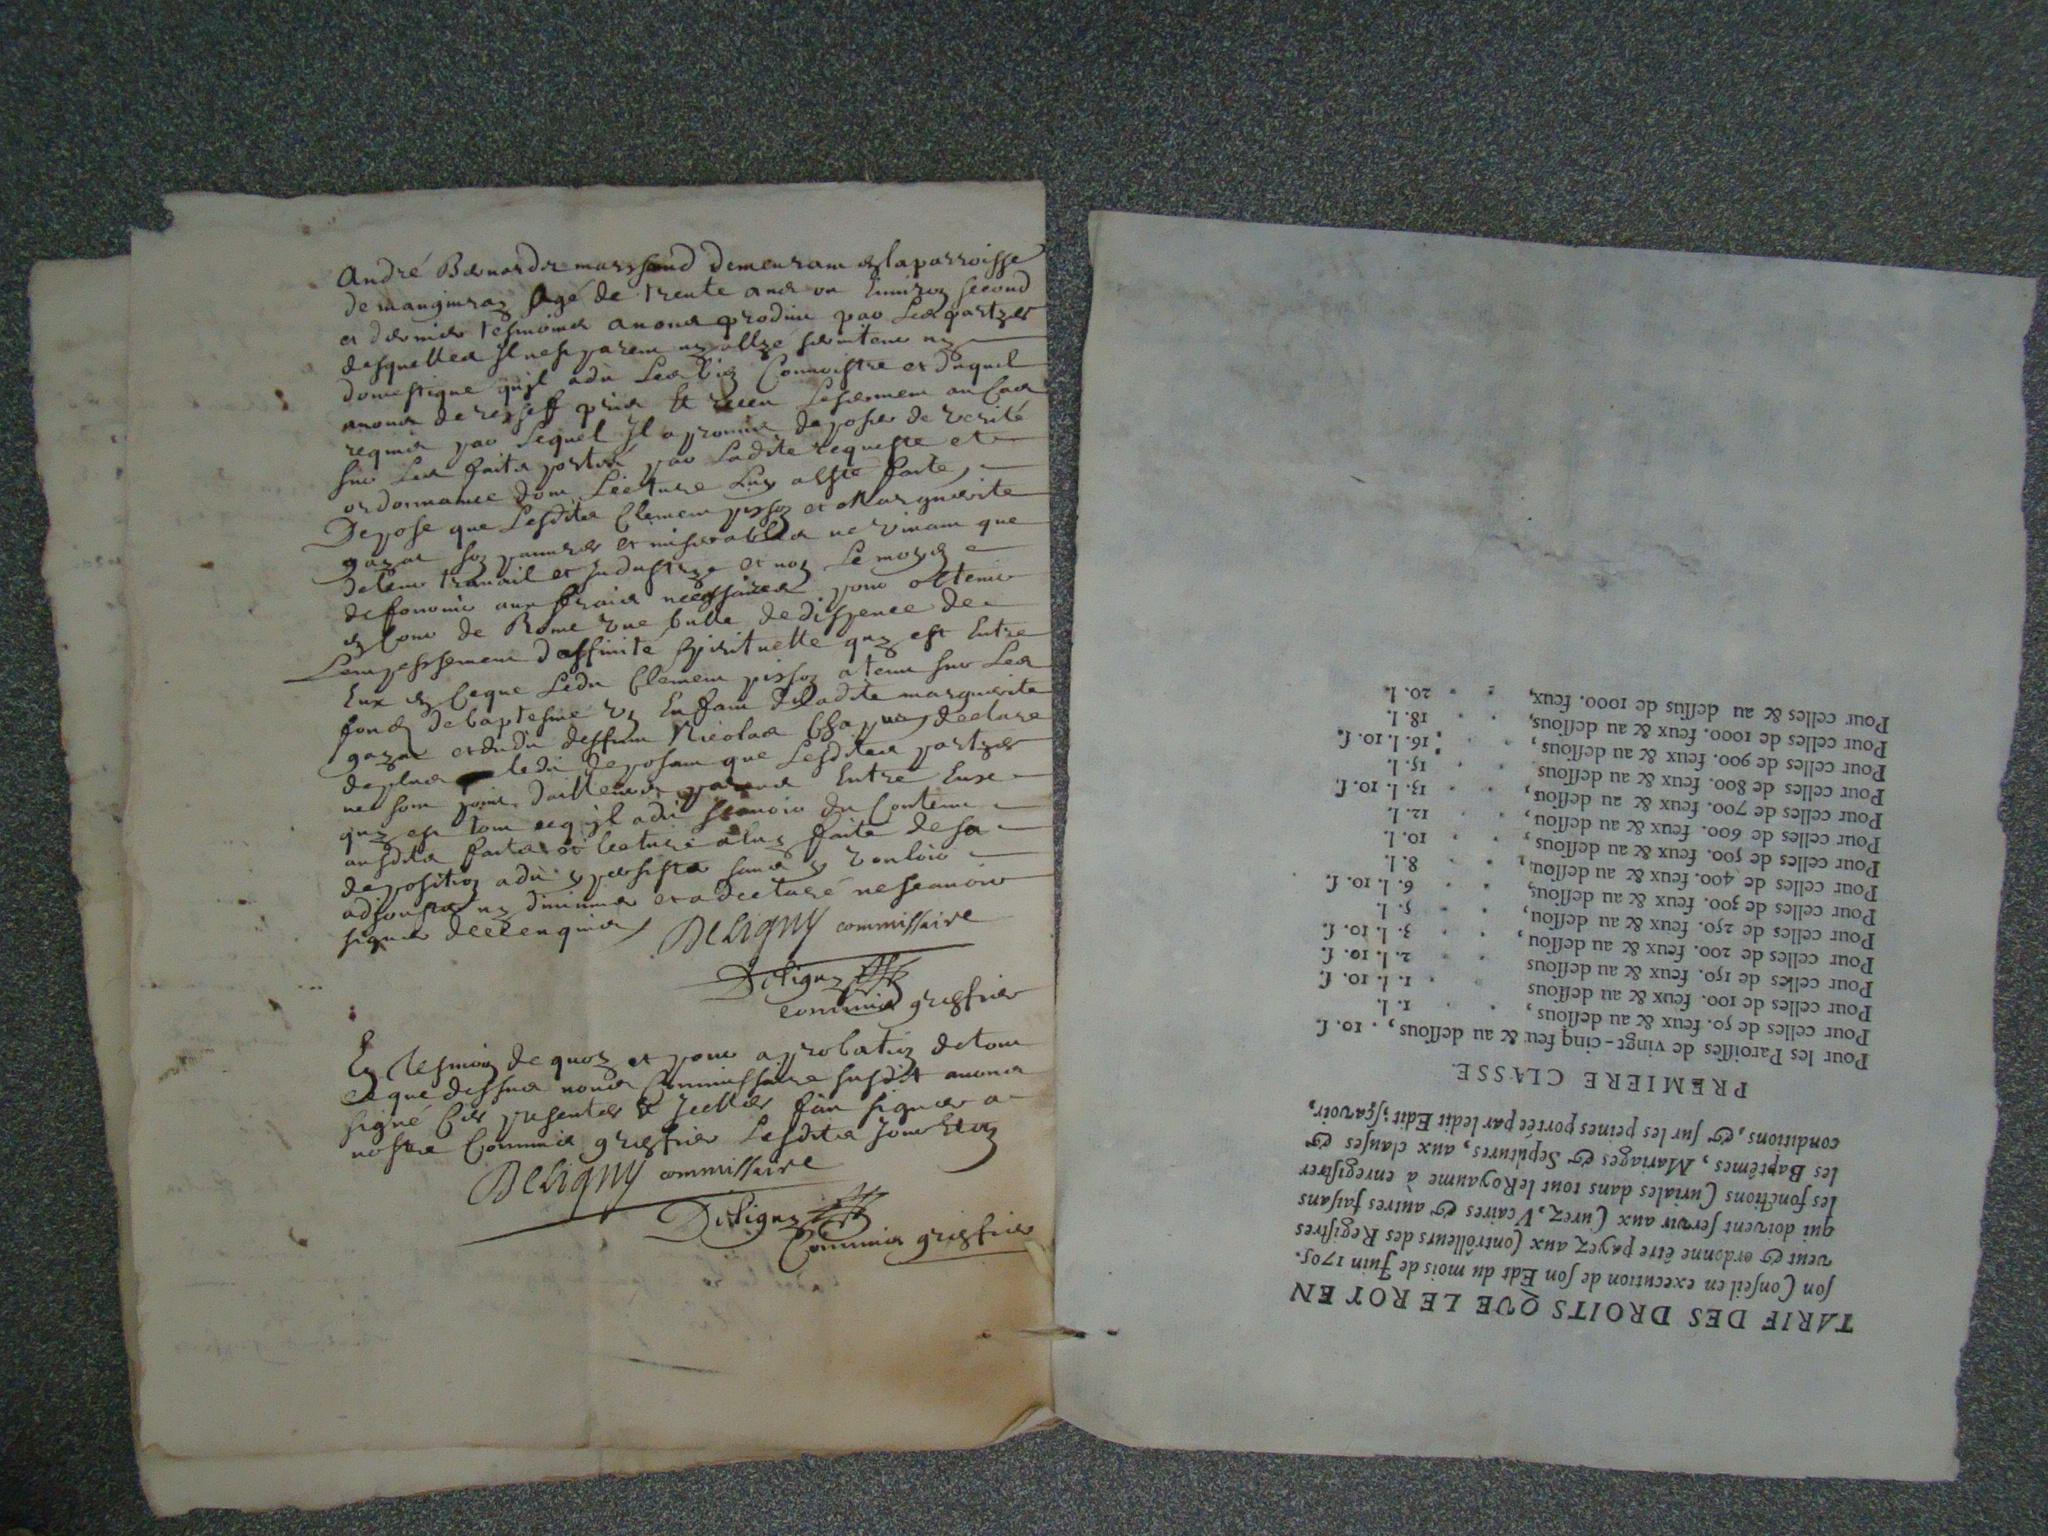 André Bernarder marchand demeurant en la parroisse
de aagé de trente ans ou Environ second
et dernier tesmoins a nous produit par Les partyes
desquelles Il nest parent ny allyé seruiteur ny
domestique quil a dit Les bien Connoistre et duquel
auons de recheff pris Et receu Le serment au Cas
requis par Lequel Il a promis deposer de verité
sur Les faits portés par Ladite requeste et
ordonnance dont Lecture Luy a esté faite,
Depose que Lesdits Clement pisson et Marguerite
gazat son pauures et miserables ne viuant que
de leur trauail et Industrye et non Le moyen
de fournir aux fraix necessaires pour obtenir
en Cour de Rome vne bulle de dispence de
Lempeschement daffinité spirituelle quy est Entre
Eux en Ce que Ledit Clement pisson a tenu sur Les
fonds de baptesme vn Enfant de Ladite marguerite
gazat et dudit deffunt Nicolas declare
de plus ledit deposant que Lesdites partyes
ne sont point dailleurs parens Entre Eux
quy est tout ce quil a dit scauoir du Contenu
ausdits faits et lecture a luy faite de sa
deposition a dit y persister sans y vouloir
adjouster ny diminuer et a declaré ne scauoir
signer de ce enquis
Deligny commissaire
Deligny
commis greffier
En tesmoin de quoy et pour aprobation de tout
ce que dessus nous Commissaire susdit auons
signé Ces presentes & Icelles fait signer a
nostre Commis greffier Lesdits jour et an
Deligny commissaire
Deligny
Commis greffier
TARIF DES DROITS QUE LE ROY EN
son Conseil en execution de son Edt du mois de Juin 1705.
veut & ordonne être payez aux Contrôlleurs des Registres
qui doivent servir aux Curez, Vcaires & autres faisans
les fonctions Curiales dans tout le Royaume à enregistrer
les Baptêmes, Mariages & Sepultures, aux clauses &
conditions, & sur les peines portée par ledit Edit; sçavoir,
PREMIERE CLASSE.
Pour les Paroisses de vingt-cinq feu & au dessous, . 10. s.
Pour celles de 50. feux & au dessous, . . 1. l.
Pour celles de 100. feux & au dessous . . 1. l. 10. s.
Pour celles de 150. feux & au dessous . . 2. l. 10. s.
Pour celles de 200. feux & au dessou, . . 3. l. 10. s.
Pour celles de 250. feux & au dessou, . . 5. l.
Pour celles de 300. feux & au dessous, . . 6. l. 10. s.
Pour celles de 400. feux & au dessou, . . 8. l.
Pour celles de 500. feux & au dessous, . . 10. l.
Pour celles de 600. feux & au dessou, . . 12. l.
Pour celles de 700. feux & au dessou, . . 13. l. 10. s.
Pour celles de 800. feux & au dessous . . 15. l.
Pour celles de 900. feux & au dessous, . . 16. l. 10. s.
Pour celles de 1000. feux & au dessous, . . 18. l.
Pour celles & au dessus de 1000. feux, . . 20. l.